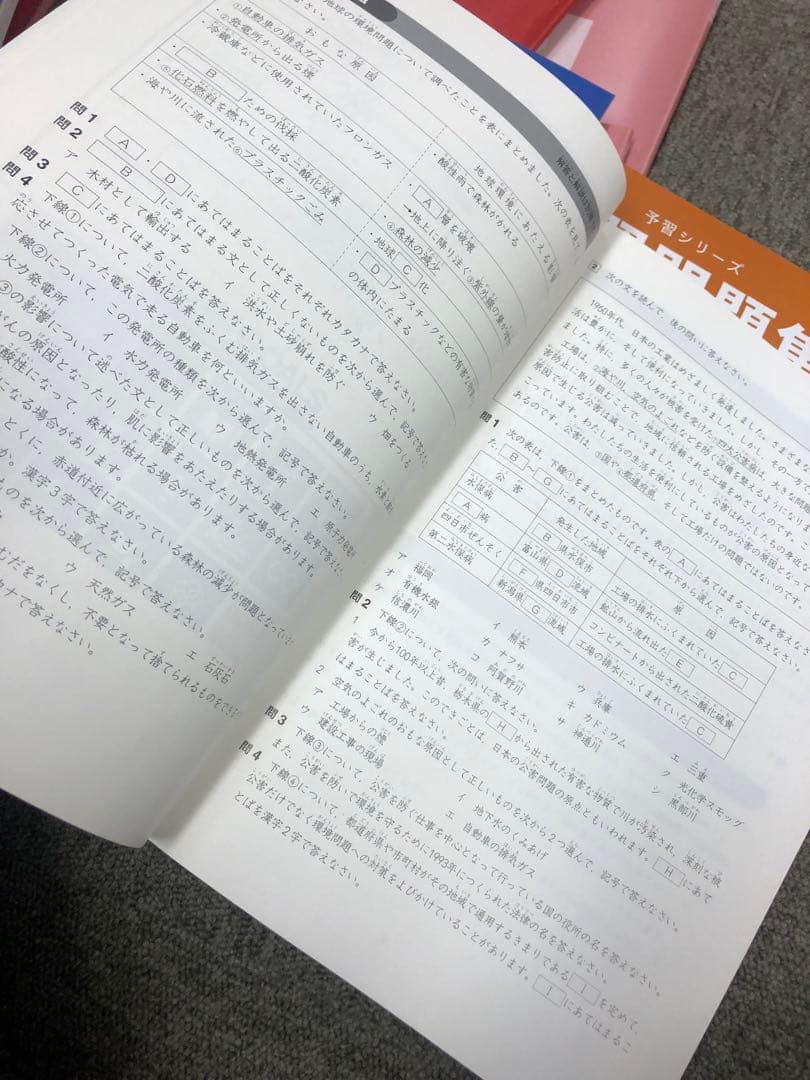 地球の環境問題について調べたことを表にまとめました。次の表を見て
さい。
解答と解説は別冊
おもな原因
地球環境にあたえる影響
・①自動車の排気ガス
・②発電所から出る煙
・酸性雨で森林がかれる
・冷蔵庫などに使用されていたフロンガス
・A層を破壊
→地上に降り注ぐ③紫外線の量が
・Bための伐採
・④森林の減少
・⑤化石燃料を燃やして出る二酸化炭素
・地球C化
・海や川に流された⑥プラスチックごみ
・Dプラスチックなどの有害な
の体内にたまる
問1 A・Dにあてはまることばをそれぞれカタカナで答えなさい。
問2 Bにあてはまる文として正しくないものを次から選んで、記号で答え
ア 木材として輸出する イ 洪水や土砂崩れを防ぐ ウ 畑をつくる
問3 Cにあてはまることばを答えなさい。
問4 下線①について、二酸化炭素をふくむ排気ガスを出さない自動車のうち、
応させてつくった電気で走る自動車を何といいますか。
下線②について、この発電所の種類を次から選んで、記号で答えなさい。
火力発電所 イ 水力発電所 ウ 地熱発電所 エ 原子力発電所
③の影響について述べた文として正しいものを次から選んで、記号で答えなさい
んの原因となったり、肌に影響をあたえたりする場合があります。
酸性になって、森林が枯れる場合があります。
になる場合があります。
とくに、赤道付近に広がっている森林の減少が問題となってい
か。漢字3字で答えなさい。
ものを次から選んで、記号で答えなさい。
ウ 天然ガス エ 石灰石
むだをなくし、不要となって捨てられるものをできる
カナで答えなさい。
予習シリーズ
2 次の文を読んで、後の問いに答えなさい。
1960年代、日本の工業はめざましく発達しました。さまざま
活は豊かに、そして便利になっていきました。しかし、その一
ました。特に、多くの人々が被害を受けた①四大公害病は、大きな問題
工場は、②海や川、空気のよごれなどを防ぐ設備を整えるようになり
害防止に取り組むことで、地域に信頼される工場をめざしたのです。
原因で生じる公害は減っていきました。しかし、公害はわたしたちの身近な
こっています。わたしたちの生活を便利にしているものが公害の原因となっ
あるのです。公害は、③国や④都道府県、そして工場だけの問題ではないのです。
問1 次の表は、下線①をまとめたものです。表のAにあてはまることばを答えなさい。
た、B～Gにあてはまることばをそれぞれ下から選んで、記号で答えなさい。
公害 発生した地域 原因
水俣病 B県水俣市 工場の排水にふくまれていたC
A病 富山県D流域 鉱山から流れ出たE
四日市ぜんそく F県四日市市 コンビナートから出された二酸化硫黄
第二水俣病 新潟県G流域 工場の排水にふくまれていたC
ア 福岡 イ 熊本 ウ 兵庫 エ 三重
オ 有機水銀 カ ナフサ キ カドミウム ク 光化学スモッグ
ケ 信濃川 コ 阿賀野川 サ 神通川 シ 黒部川
問2 下線②について、次の問いに答えなさい。
1 今から100年以上昔、栃木県のHから出された有害な物質で川が汚染され、深刻な被
害が生じました。このできごとは、日本の公害問題の原点ともいわれます。Hにあて
はまることばを答えなさい。
2 空気のよごれのおもな原因として正しいものを次から2つ選んで、記号で答えなさい。
ア 工場からの煙 イ 地下水のくみあげ
ウ 建設工事の現場 エ 自動車の排気ガス
問3 下線③について、公害を防ぐ仕事を中心となって行っている国の役所の名を答えなさい。
また、公害を防いで環境を守るために1993年につくられた法律の名を答えなさい。
問4 下線④について、都道府県や市町村がその地域で通用するきまりであるIを定めて、
公害だけでなく、環境問題への対策をよびかけていることがあります。Iにあてはまるこ
とばを漢字2字で答えなさい。